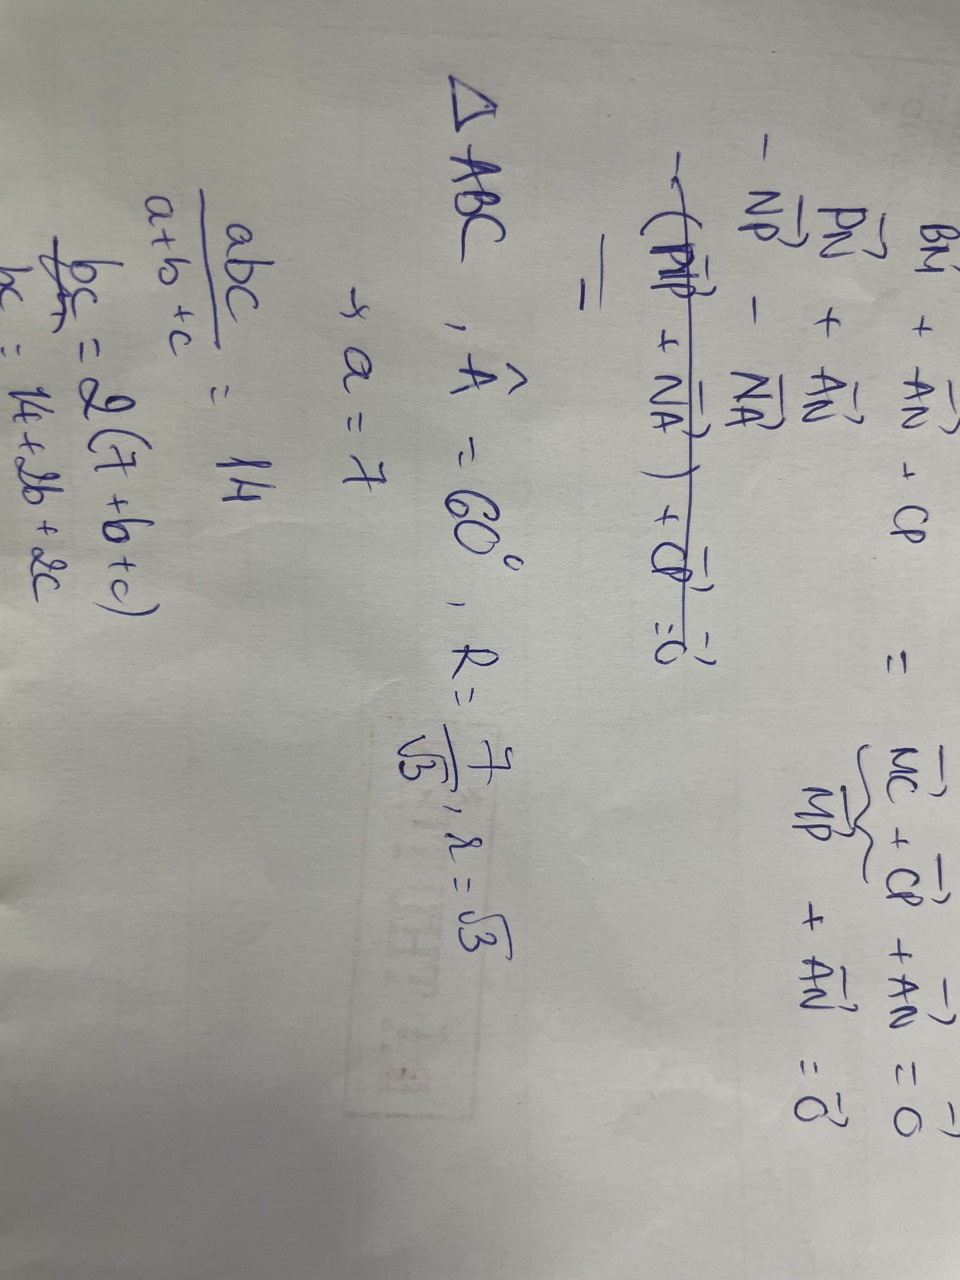 BM + \vec{AN} + CP = \vec{MC} + \vec{CP} + \vec{AN} = \vec{O}
\vec{PN} + \vec{AN} \vec{MP} + \vec{AN} = \vec{O}
- \vec{NP} - \vec{NA}
- ( + \vec{NA}) + \vec{CP} = \vec{O}
Δ ABC , Â = 60° , R = \frac{7}{\sqrt{3}} , r = \sqrt{3}
→ a = 7
\frac{abc}{a+b+c} = 14
bc = 2(7 + b + c)
bc = 14 + 2b + 2c